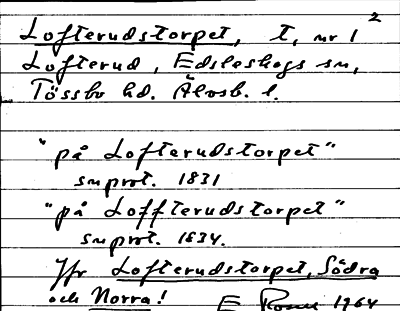 Lofterudstorpet, t, nr 1²
Lofterud, Edsleskogs sn,
Tössbo hd. Älvsb. l.
"på Lofterudstorpet"
snprot. 1831
"på Loffterudstorpet"
snprot. 1834.
Jfr Lofterudstorpet, Södra
och Norra! E 1964